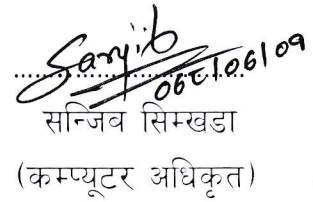 Sanjib
068/06/09
सन्जिव सिम्खडा
(कम्प्यूटर अधिकृत)